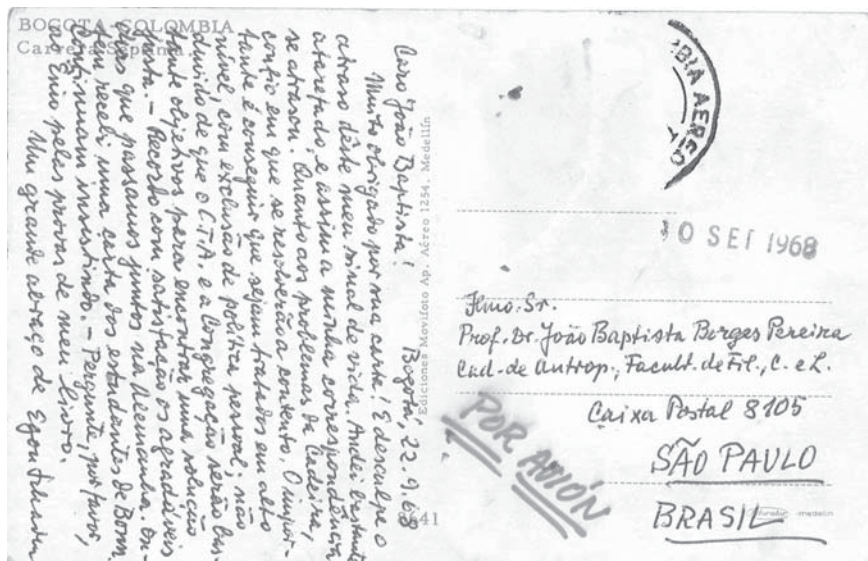 BOGOTA - COLOMBIA
Carrera Septima.
Bogotá, 22.9.68
Caro João Baptista!
Muito obrigado por sua carta! E desculpe o
atraso dêste meu sinal de vida. Andei bastante
atarefado, e assim a minha correspondência
se atrasou. Quanto aos problemas da Cadeira,
confio em que se resolverão a contento. O impor-
tante é conseguir que sejam tratados em alto
nível, com exclusão de política pessoal; não
duvido de que o C.T.A. e a Congregação serão bas-
tante objetivos para encontrar uma solução
justa. - Recordo com satisfação os agradáveis
dias que passamos juntos na Alemanha. On-
tem recebi uma carta dos estudantes de Bonn,
continuam insistindo. - Pergunte, por favor,
ao Enio pelas provas de meu livro.
Um grande abraço de Egon Schaden
Ediciones Movifoto Ap. Aéreo 1254. Medellín
41
BIA AEREO
10 SET 1968
Ilmo. Sr.
Prof. Dr. João Baptista Borges Pereira
Cad. de Antrop., Facult. de Fil., C. e L.
Caixa Postal 8105
SÃO PAULO
BRASIL
POR AVIÓN
medellin